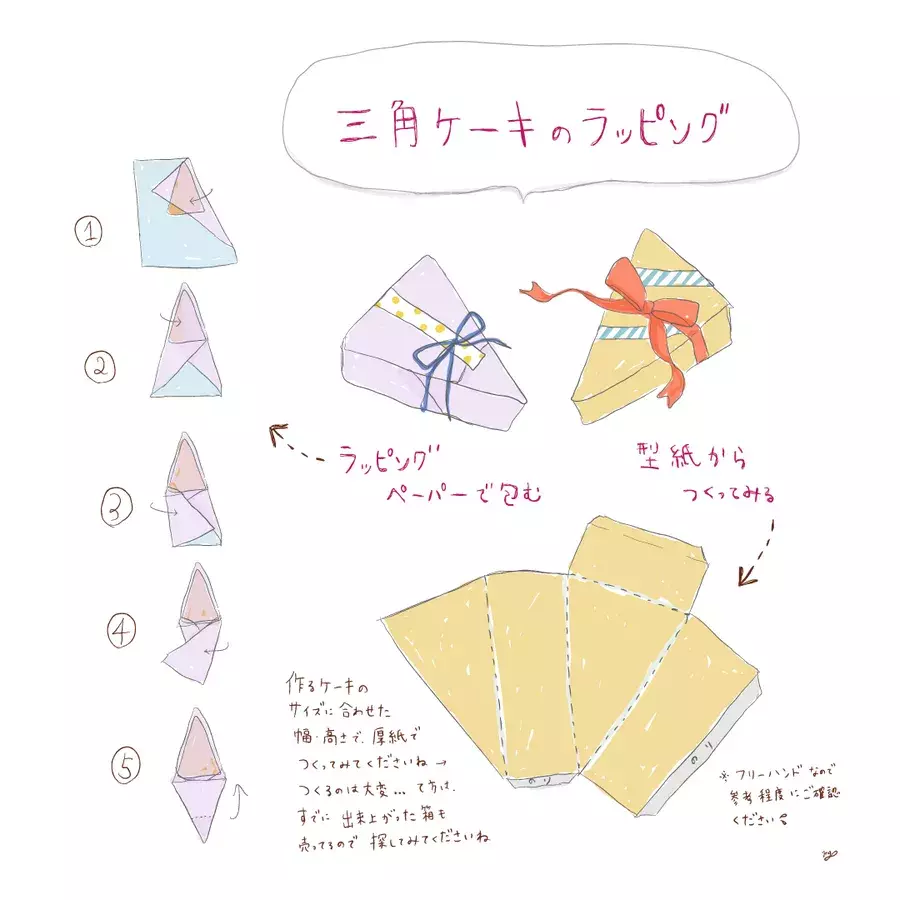 三角ケーキのラッピング
①
②
③
④
⑤
ラッピング
ペーパーで包む
型紙から
つくってみる
作るケーキの
サイズに合わせた
幅・高さで、厚紙で
つくってみてくださいね→
つくるのは大変...て方は、
すでに出来上がった箱も
売ってるので 探してみてくださいね
のり
のり
※フリーハンドなので
参考程度にご確認
ください